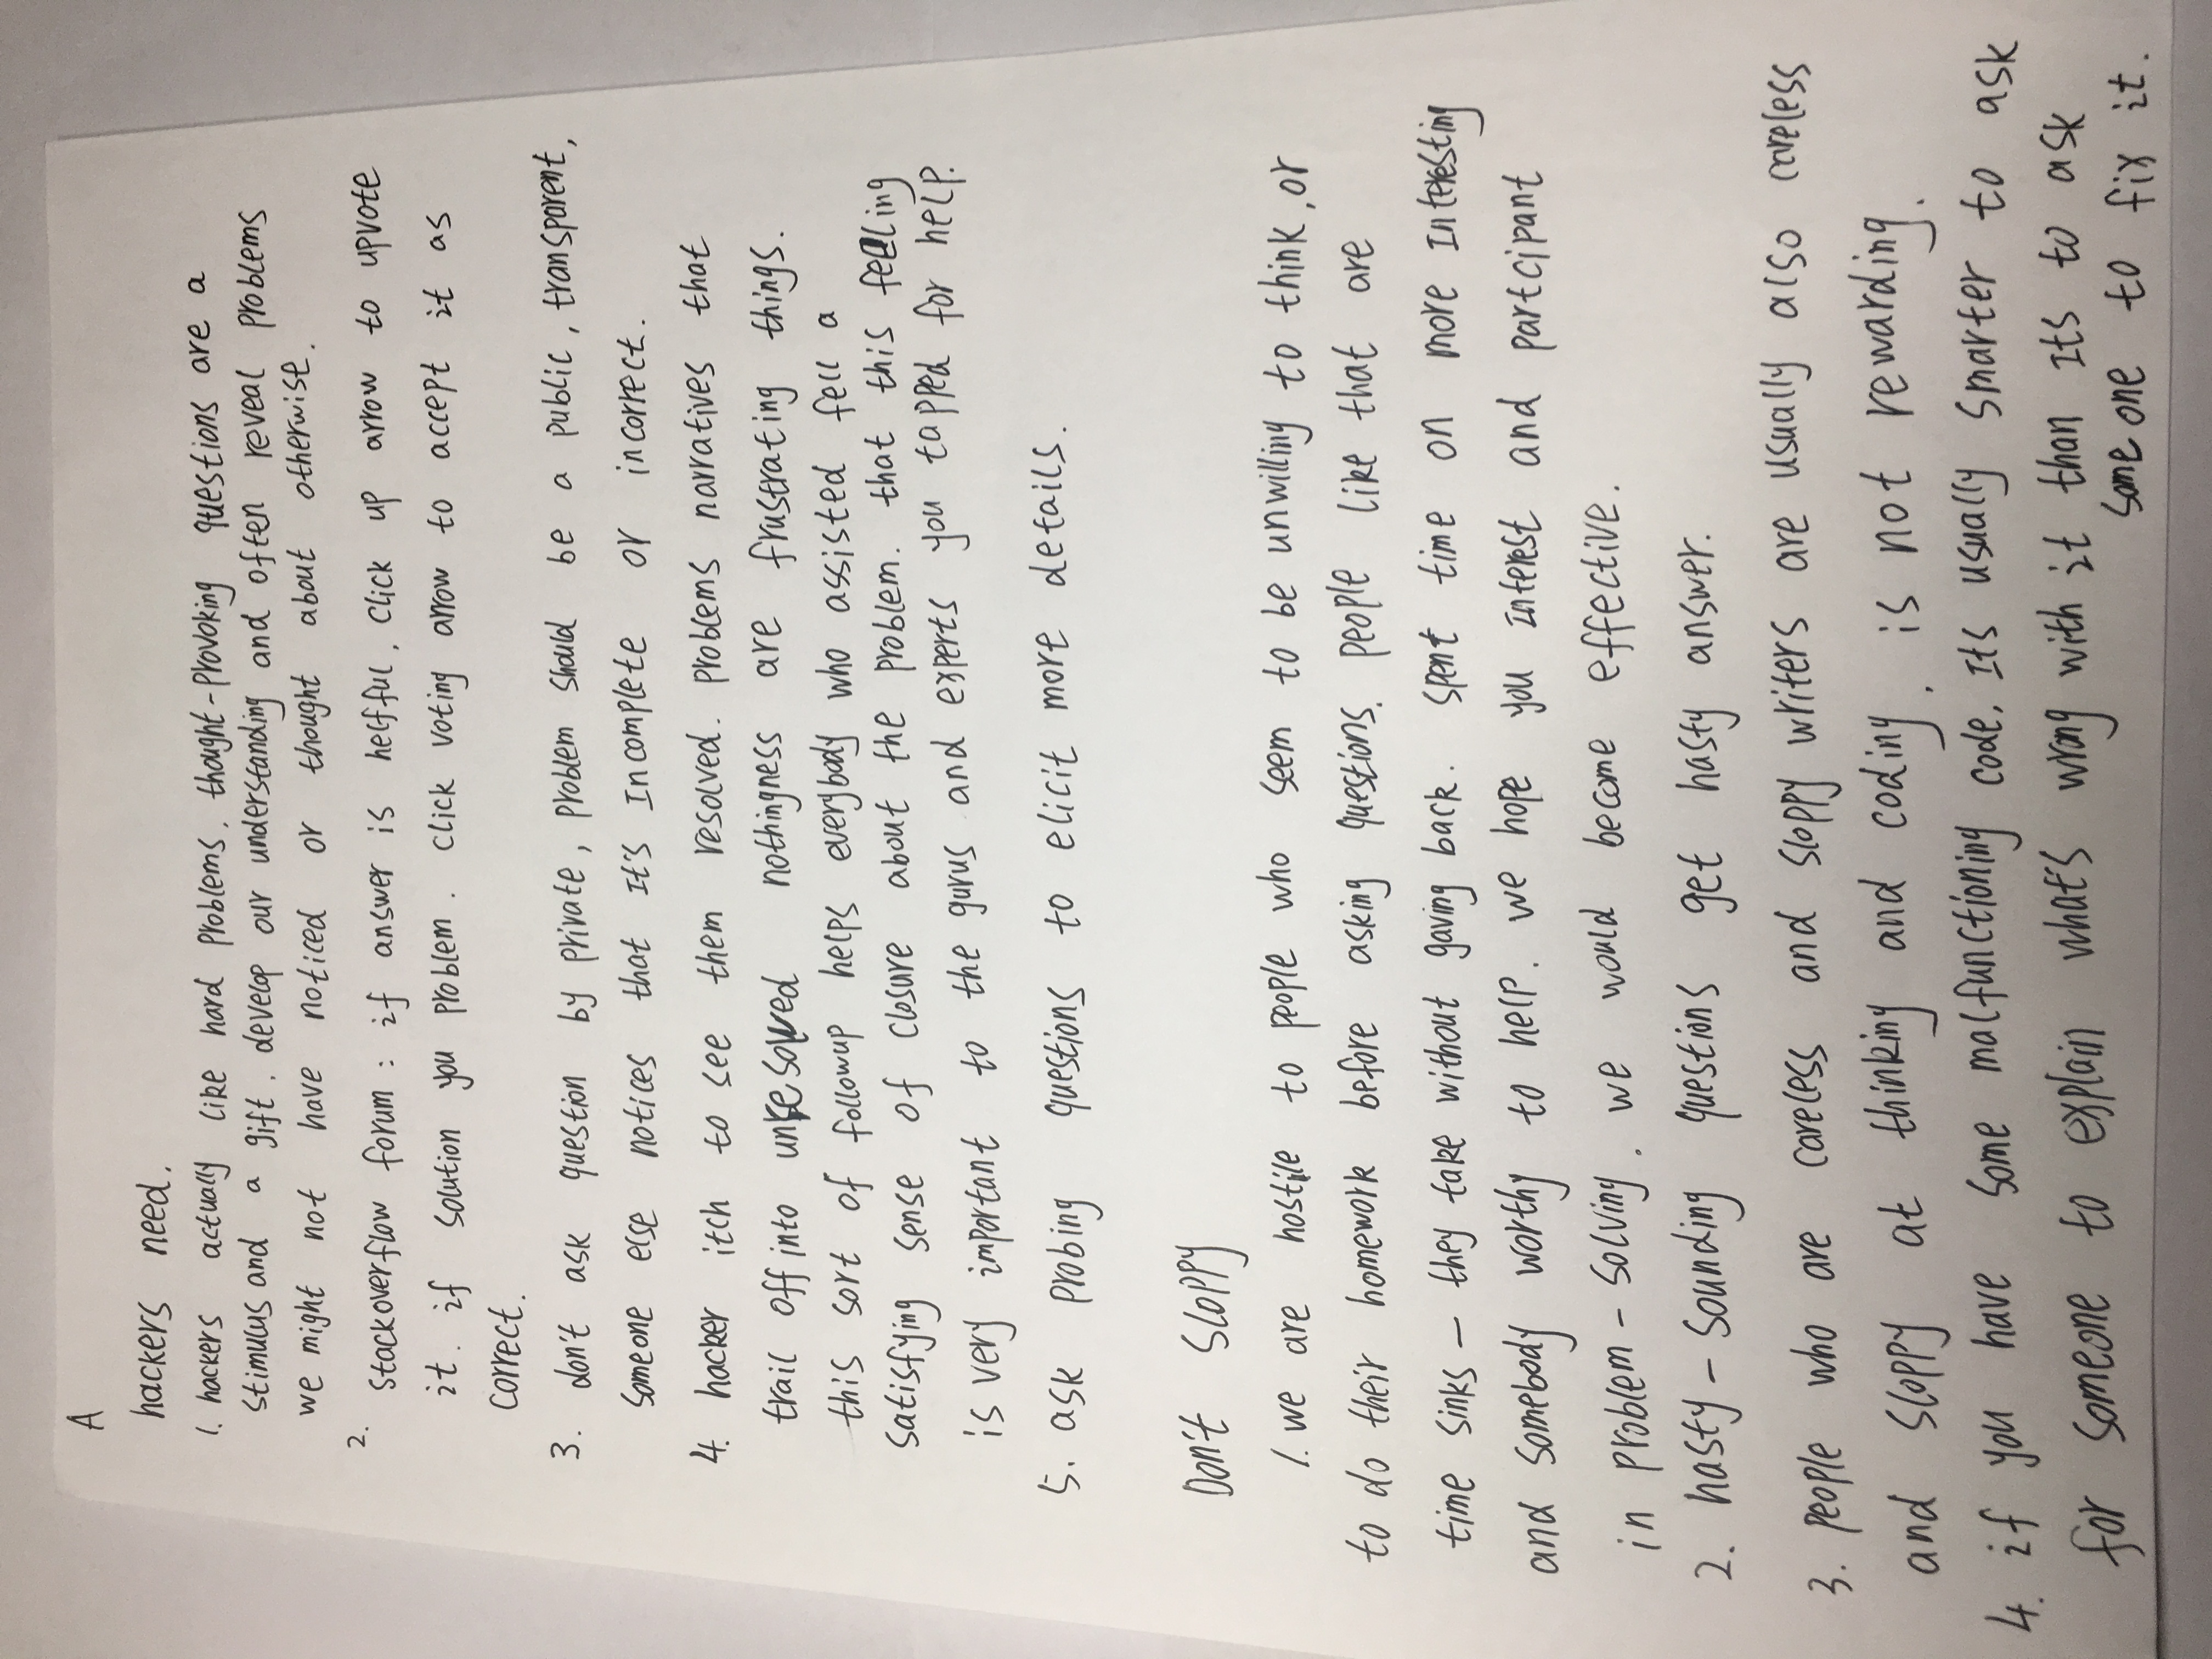 A
hackers need.
1. hackers actually like hard problems. thought-provoking questions are a
stimulus and a gift. develop our understanding and often reveal problems
we might not have noticed or thought about otherwise.
2. stackoverflow forum : if answer is helfful, click up arrow to upvote
it. if solution you problem. click voting arrow to accept it as
correct.
3. don't ask question by private, problem should be a public, transparent,
someone else notices that It's Incomplete or incorrect.
4. hacker itch to see them resolved. problems narratives that
trail off into unresolved nothingness are frustrating things.
this sort of followup helps everybody who assisted fell a
satisfying sense of closure about the problem. that this feeling
is very important to the gurus and experts you tapped for help.
5. ask probing questions to elicit more details.
Don't sloppy
1. we are hostile to people who seem to be unwilling to think, or
to do their homework before asking questions. people like that are
time sinks — they take without gaving back. spent time on more Interesting
and somebody worthy to help. we hope you Interest and partcipant
in problem-solving. we would become effective.
2. hasty-sounding questions get hasty answer.
3. people who are careless and sloppy writers are usually also careless
and sloppy at thinking and coding. is not rewarding.
4. if you have some malfunctioning code, Its usually smarter to ask
for someone to explain what's wrong with it than Its to ask
someone to fix it.